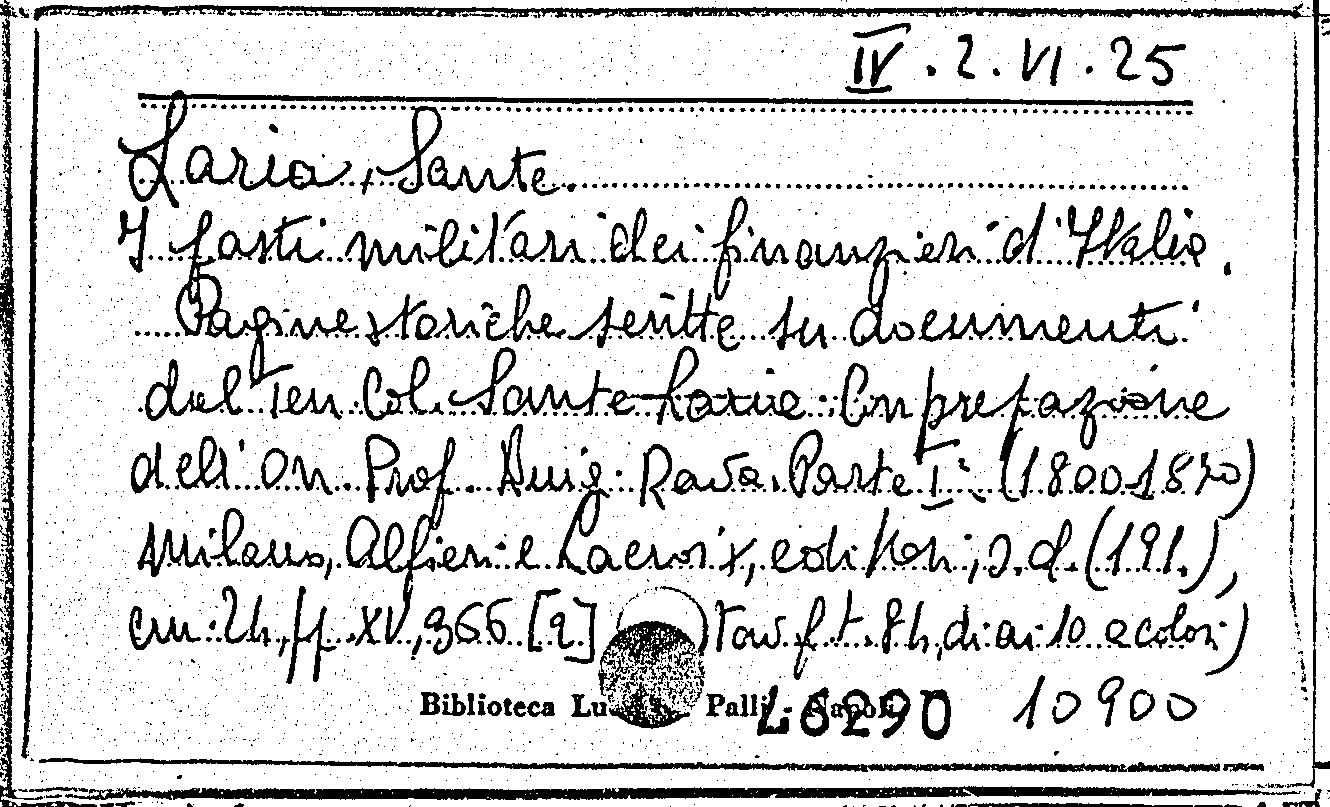 IV. 2. VI. 25
Laria, Sante.
I fasti militari dei finanzieri d'Italia.
Pagine storiche scritte su documenti
dal Ten. Col. Sante Laria. Con prefazione
dell'On. Prof. Luig. Rava. Parte I: (1800-1870)
Milano, Alfieri e Lacroix, editori, s.d. (191.),
cm. 24, pp. XV, 366 [2] Tav. f. t. 84, di cui 10 a colori)
Biblioteca Palli - Napoli
L6290 10900